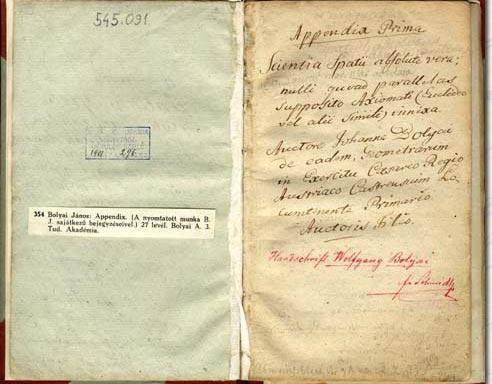 545.091.
1901. 296.
354 Bolyai János: Appendix. (A nyomtatott munka B.
J. sajátkezű bejegyzéseivel.) 27 levél. Bolyai A. 3.
Tud. Akadémia.
Appendix Prima
Scientia Spatii absolute vera;
nulli quoad parallelas
supposito Axiomati (Euclideo
vel alii simili) innixa
Auctore Johanne Bolyai
de eadem, Geometrarum
in Exercitu Caesareo Regio
Austriaco Castrensium Lo-
cumtenente Primario.
Auctoris Filio.
Handschrift Wolfgang Bolyai
Fr Schmidt